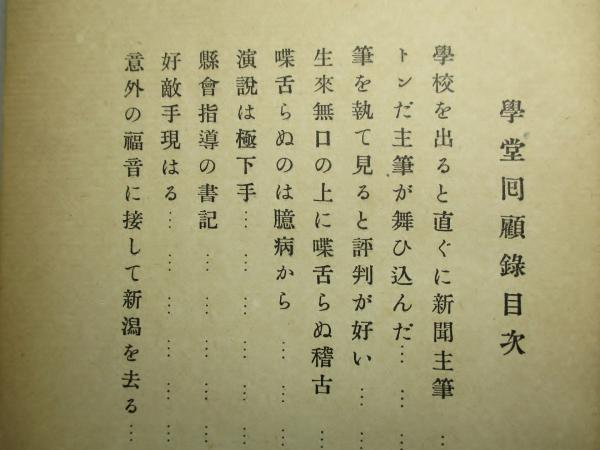 學堂回顧錄目次
學校を出ると直ぐに新聞主筆…
トンだ主筆が舞ひ込んだ………
筆を執て見ると評判が好い……
生來無口の上に喋舌らぬ稽古…
喋舌らぬのは臆病から………
演說は極下手………………
縣會指導の書記………………
好敵手現はる…………………
意外の福音に接して新潟を去る…